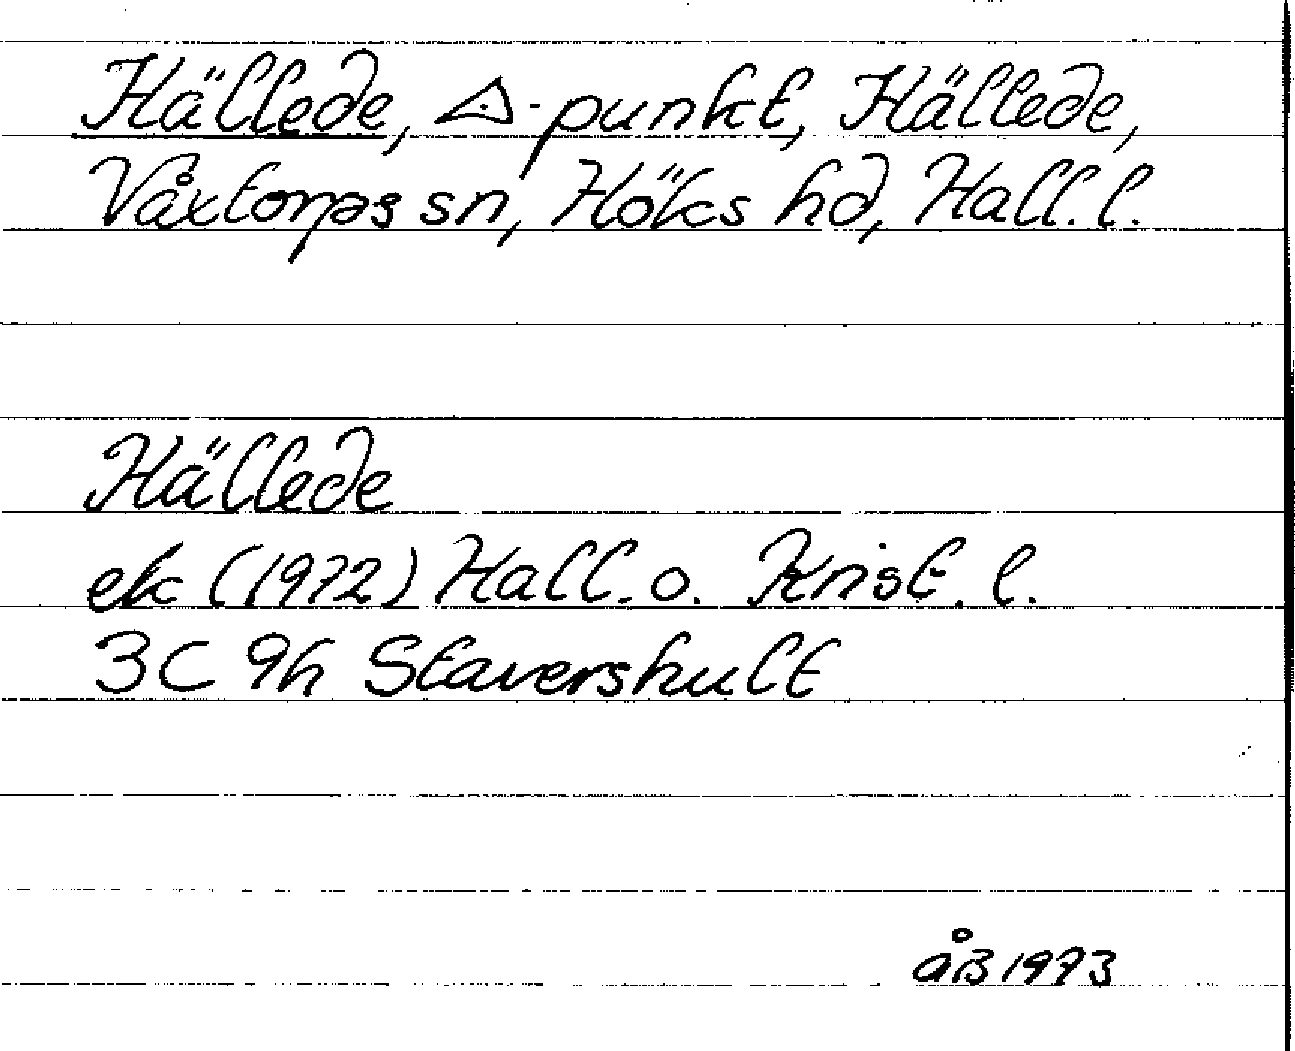 Hällede, △-punkt, Hällede,
Våxtorps sn, Höks hd, Hall. l.
Hällede
ek (1972) Hall. o. Krist. l.
3C 9h Stavershult
åB 1973